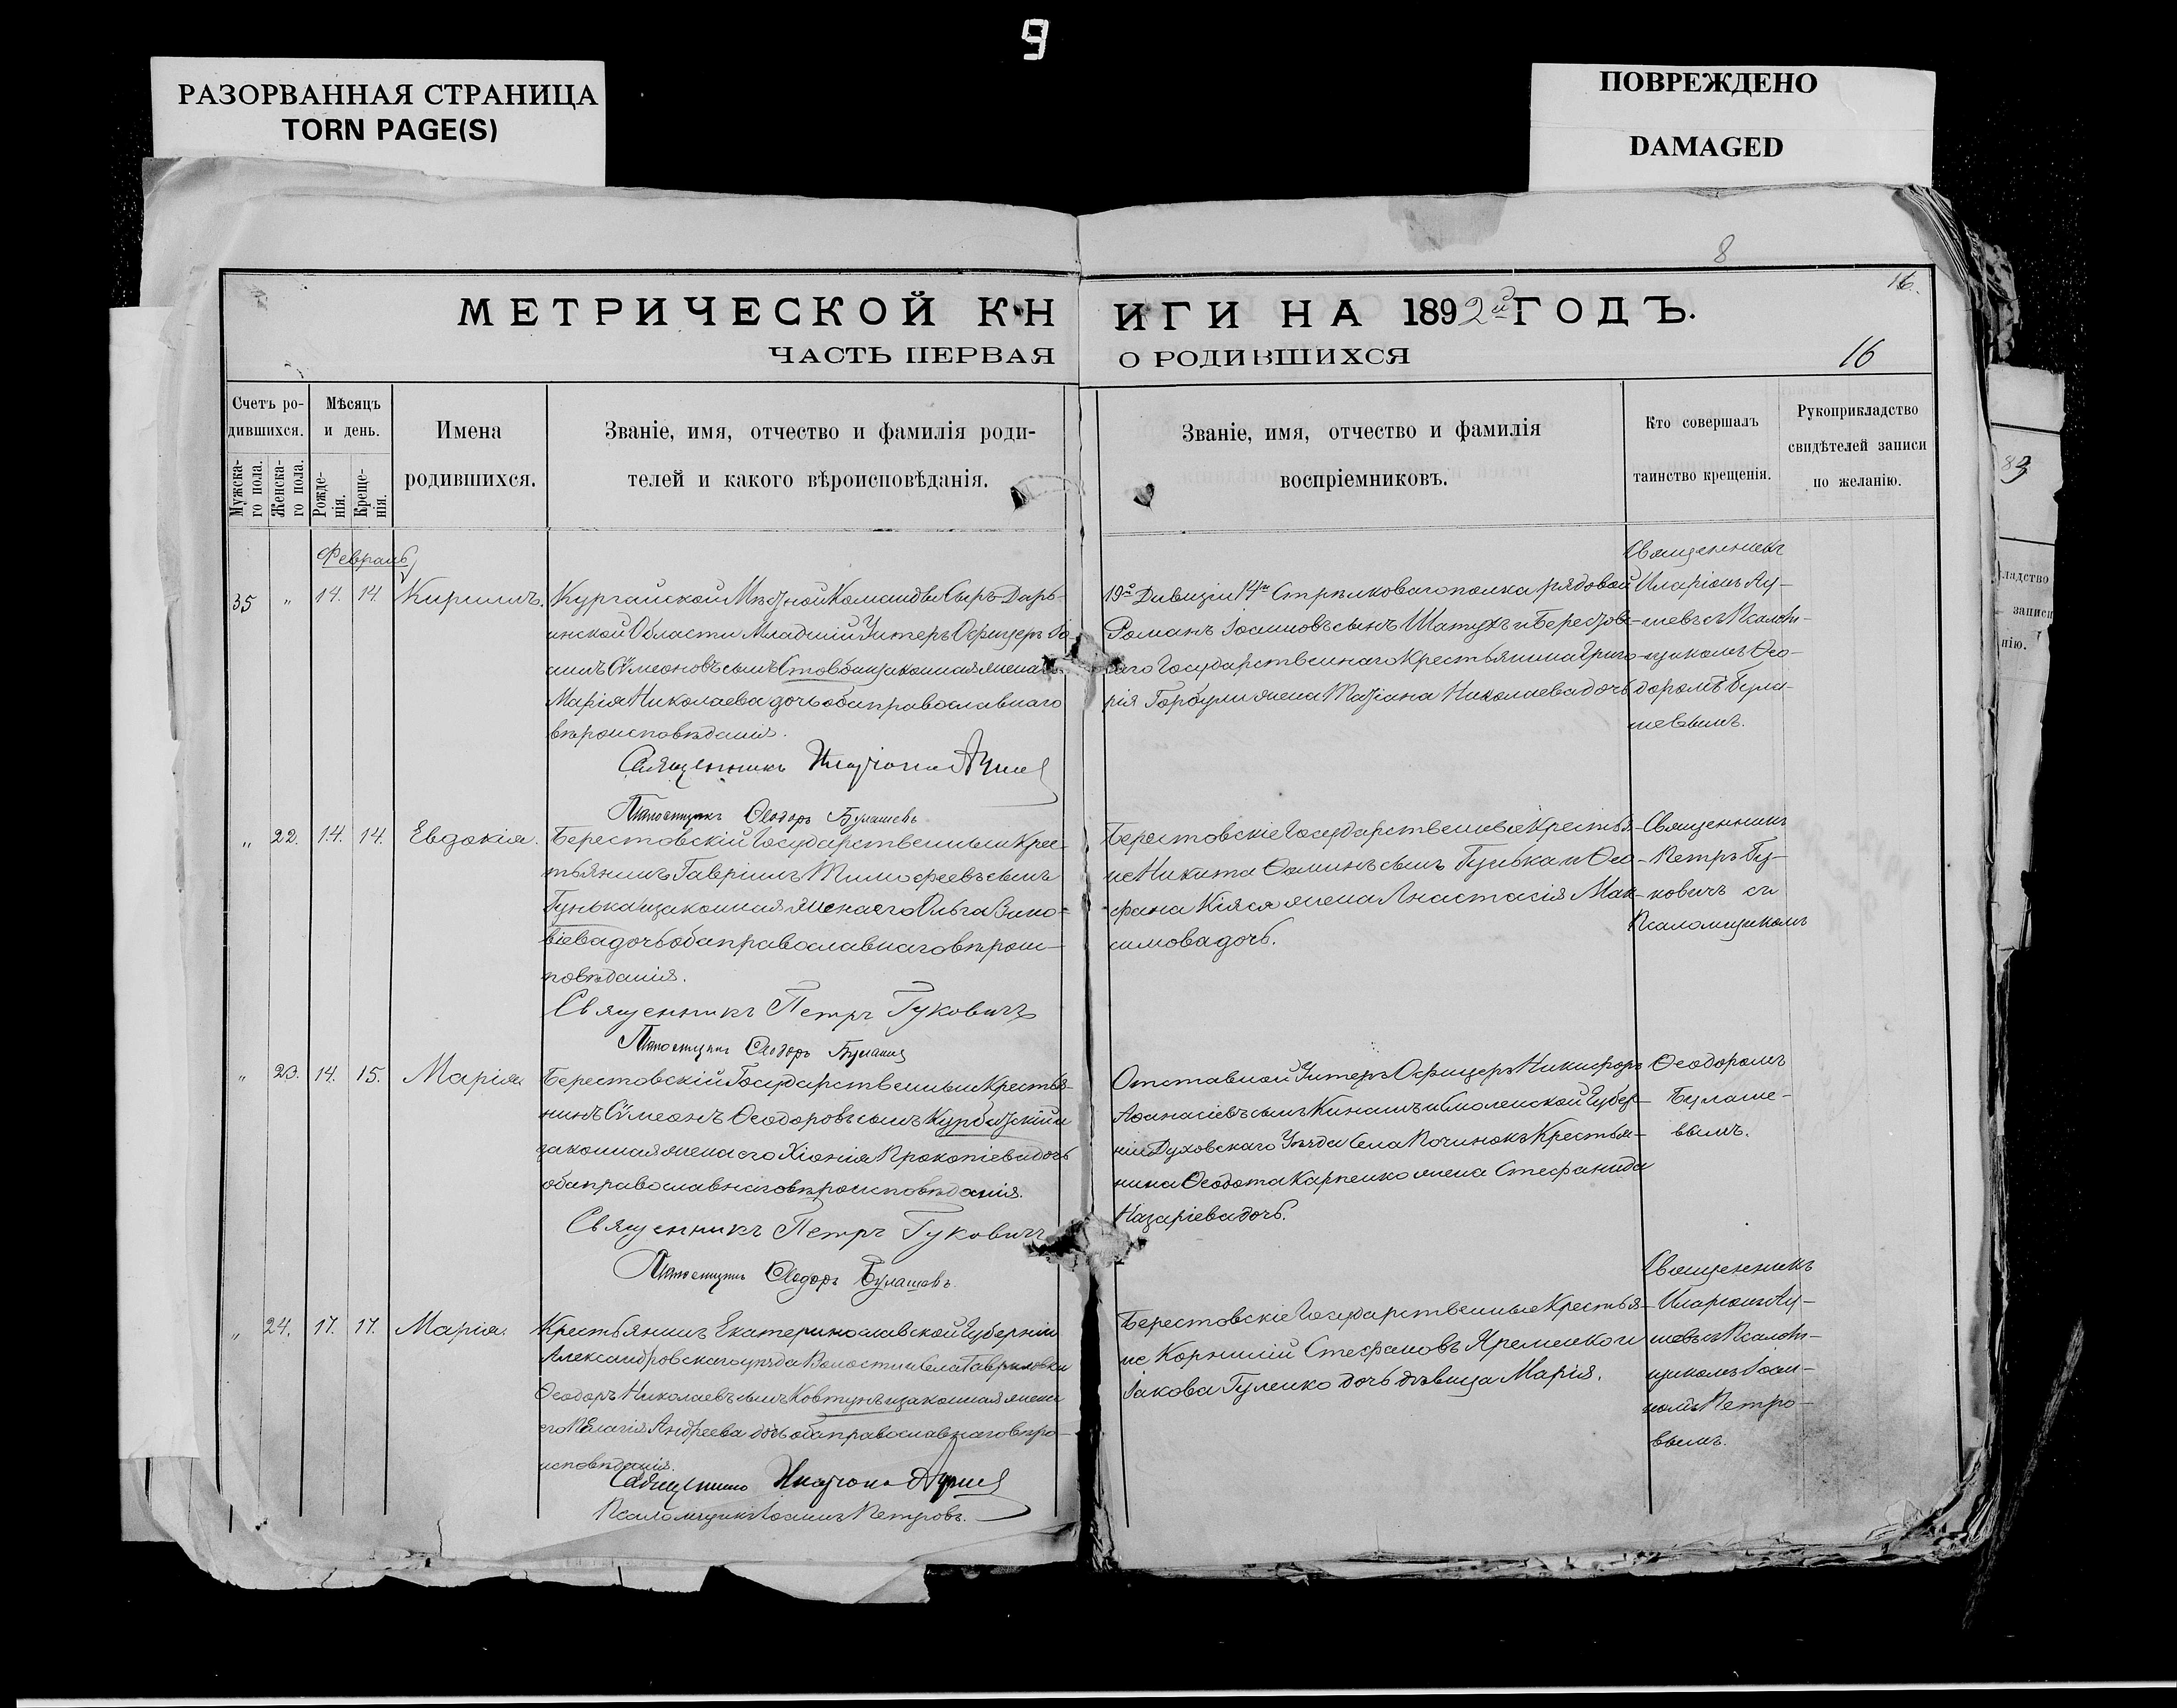 9
РАЗОРВАННАЯ СТРАНИЦА
TORN PAGE(S)
ПОВРЕЖДЕНО
DAMAGED
8
16.
МЕТРИЧЕСКОЙ КНИГИ НА 1892й ГОДЪ.
ЧАСТЬ ПЕРВАЯ О РОДИВШИХСЯ
16
Счетъ ро-
дившихся.
Мужска-
го пола.
Женска-
го пола.
Мѣсяцъ
и день.
Рожде-
нія.
Креще-
нія.
Имена
родившихся.
Званіе, имя, отчество и фамилія роди-
телей и какого вѣроисповѣданія.
Званіе, имя, отчество и фамилія
воспріемниковъ.
Кто совершалъ
таинство крещенія.
Рукоприкладство
свидѣтелей записи
по желанію.
Февраль
35 " 14. 14. Кириллъ.
Кургайской Мѣстной Команды Сыръ-Дарь-
инской Области Младшій Унтеръ Офицеръ
Сѵмеоновъ сынъ Стовба и законная жена его
Марія Николаева дочь оба православнаго
вѣроисповѣданія.
Священникъ Иларіонъ
Псаломщикъ Ѳеодоръ Булашевъ
19й Дивизіи 14го Стрѣлковаго полка рядовой
Романъ Іоанновъ сынъ Шатухъ и Берестов-
скаго Государственнаго Крестьянина Григо-
рія Горбули жена Татіана Николаева дочь
Священникъ
Иларіонъ
съ Псалом-
щикомъ Ѳео-
доромъ Була-
шевымъ.
" 22. 14. 14. Евдокія.
Берестовскій Государственный Крес-
тьянинъ Гавріилъ Тимофеевъ сынъ
Гунька и законная жена его Ольга Зино-
віева дочь оба православнаго вѣроис-
повѣданія.
Священникъ Петръ Гуковичъ
Псаломщикъ Ѳеодоръ Булашевъ
Берестовскіе Государственные Крестья-
не Никита Ѳоминъ сынъ Гунька и Сте-
фана Кіяся жена Анастасія Мак-
симова дочь.
Священникъ
Петръ Гу-
ковичъ съ
Псаломщикомъ
" 23. 14. 15. Марія
Берестовскій Государственный Крестья-
нинъ Сѵмеонъ Ѳеодоровъ сынъ Курбатскій и
законная жена его Хіонія Прокопіева дочь
оба православнаго вѣроисповѣданія.
Священникъ Петръ Гуковичъ
Псаломщикъ Ѳеодоръ Булашевъ
Отставной Унтеръ Офицеръ Никифоръ
Аѳанасіевъ сынъ и Смоленской Губер-
ніи Духовскаго Уѣзда Села Починокъ Крестья-
нина Ѳеодота Карпенко жена Стефанида
Назаріева дочь.
Ѳеодоромъ
Булаше-
вымъ.
" 24. 17. 17. Марія.
Крестьянинъ Екатеринославской Губерніи
Александровскаго уѣзда Волости и Села Гавриловки
Ѳеодоръ Николаевъ сынъ Ковтунъ и законная жена
его Пелагія Андреева дочь оба православнаго вѣро-
исповѣданія.
Священникъ Иларіонъ
Псаломщикъ Іоаннъ Петровъ.
Берестовскіе Государственные Крестья-
не Корнилій Стефановъ Яременко и
Іакова Гуленко дочь дѣвица Марія.
Священникъ
Иларіонъ
съ Псалом-
щикомъ Іоан-
номъ Петро-
вымъ.
83
ладство
записи
нію.